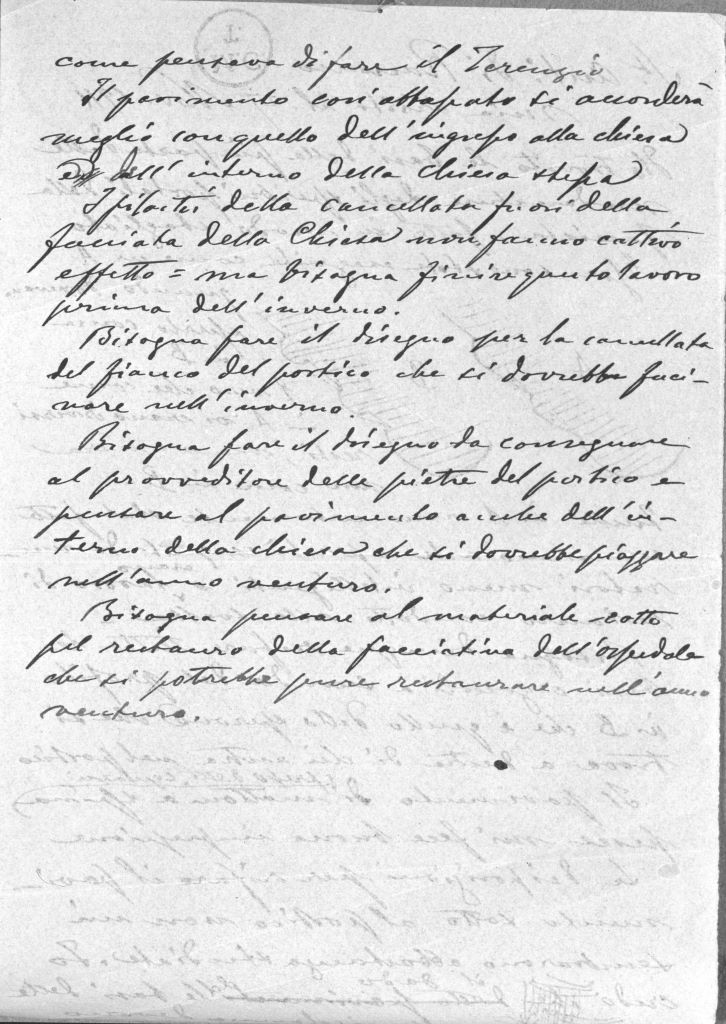 come pensava di fare il Terenzio
Il pavimento così attapato si accorderà
meglio con quello dell'ingresso alla chiesa
e dell'interno della chiesa stessa
I pilastri della cancellata fuori della
facciata della Chiesa non fanno cattivo
effetto = ma bisogna finire questo lavoro
prima dell'inverno.
Bisogna fare il disegno per la cancellata
del fianco del portico che si dovrebbe fuci-
nare nell'inverno.
Bisogna fare il disegno da consegnare
al provveditore delle pietre del portico e
pensare al pavimento anche dell'in-
terno della chiesa che si dovrebbe piazzare
nell'anno venturo.
Bisogna pensare al materiale cotto
pel restauro della facciatina dell'ospedale
che si potrebbe pure restaurare nell'anno
venturo.